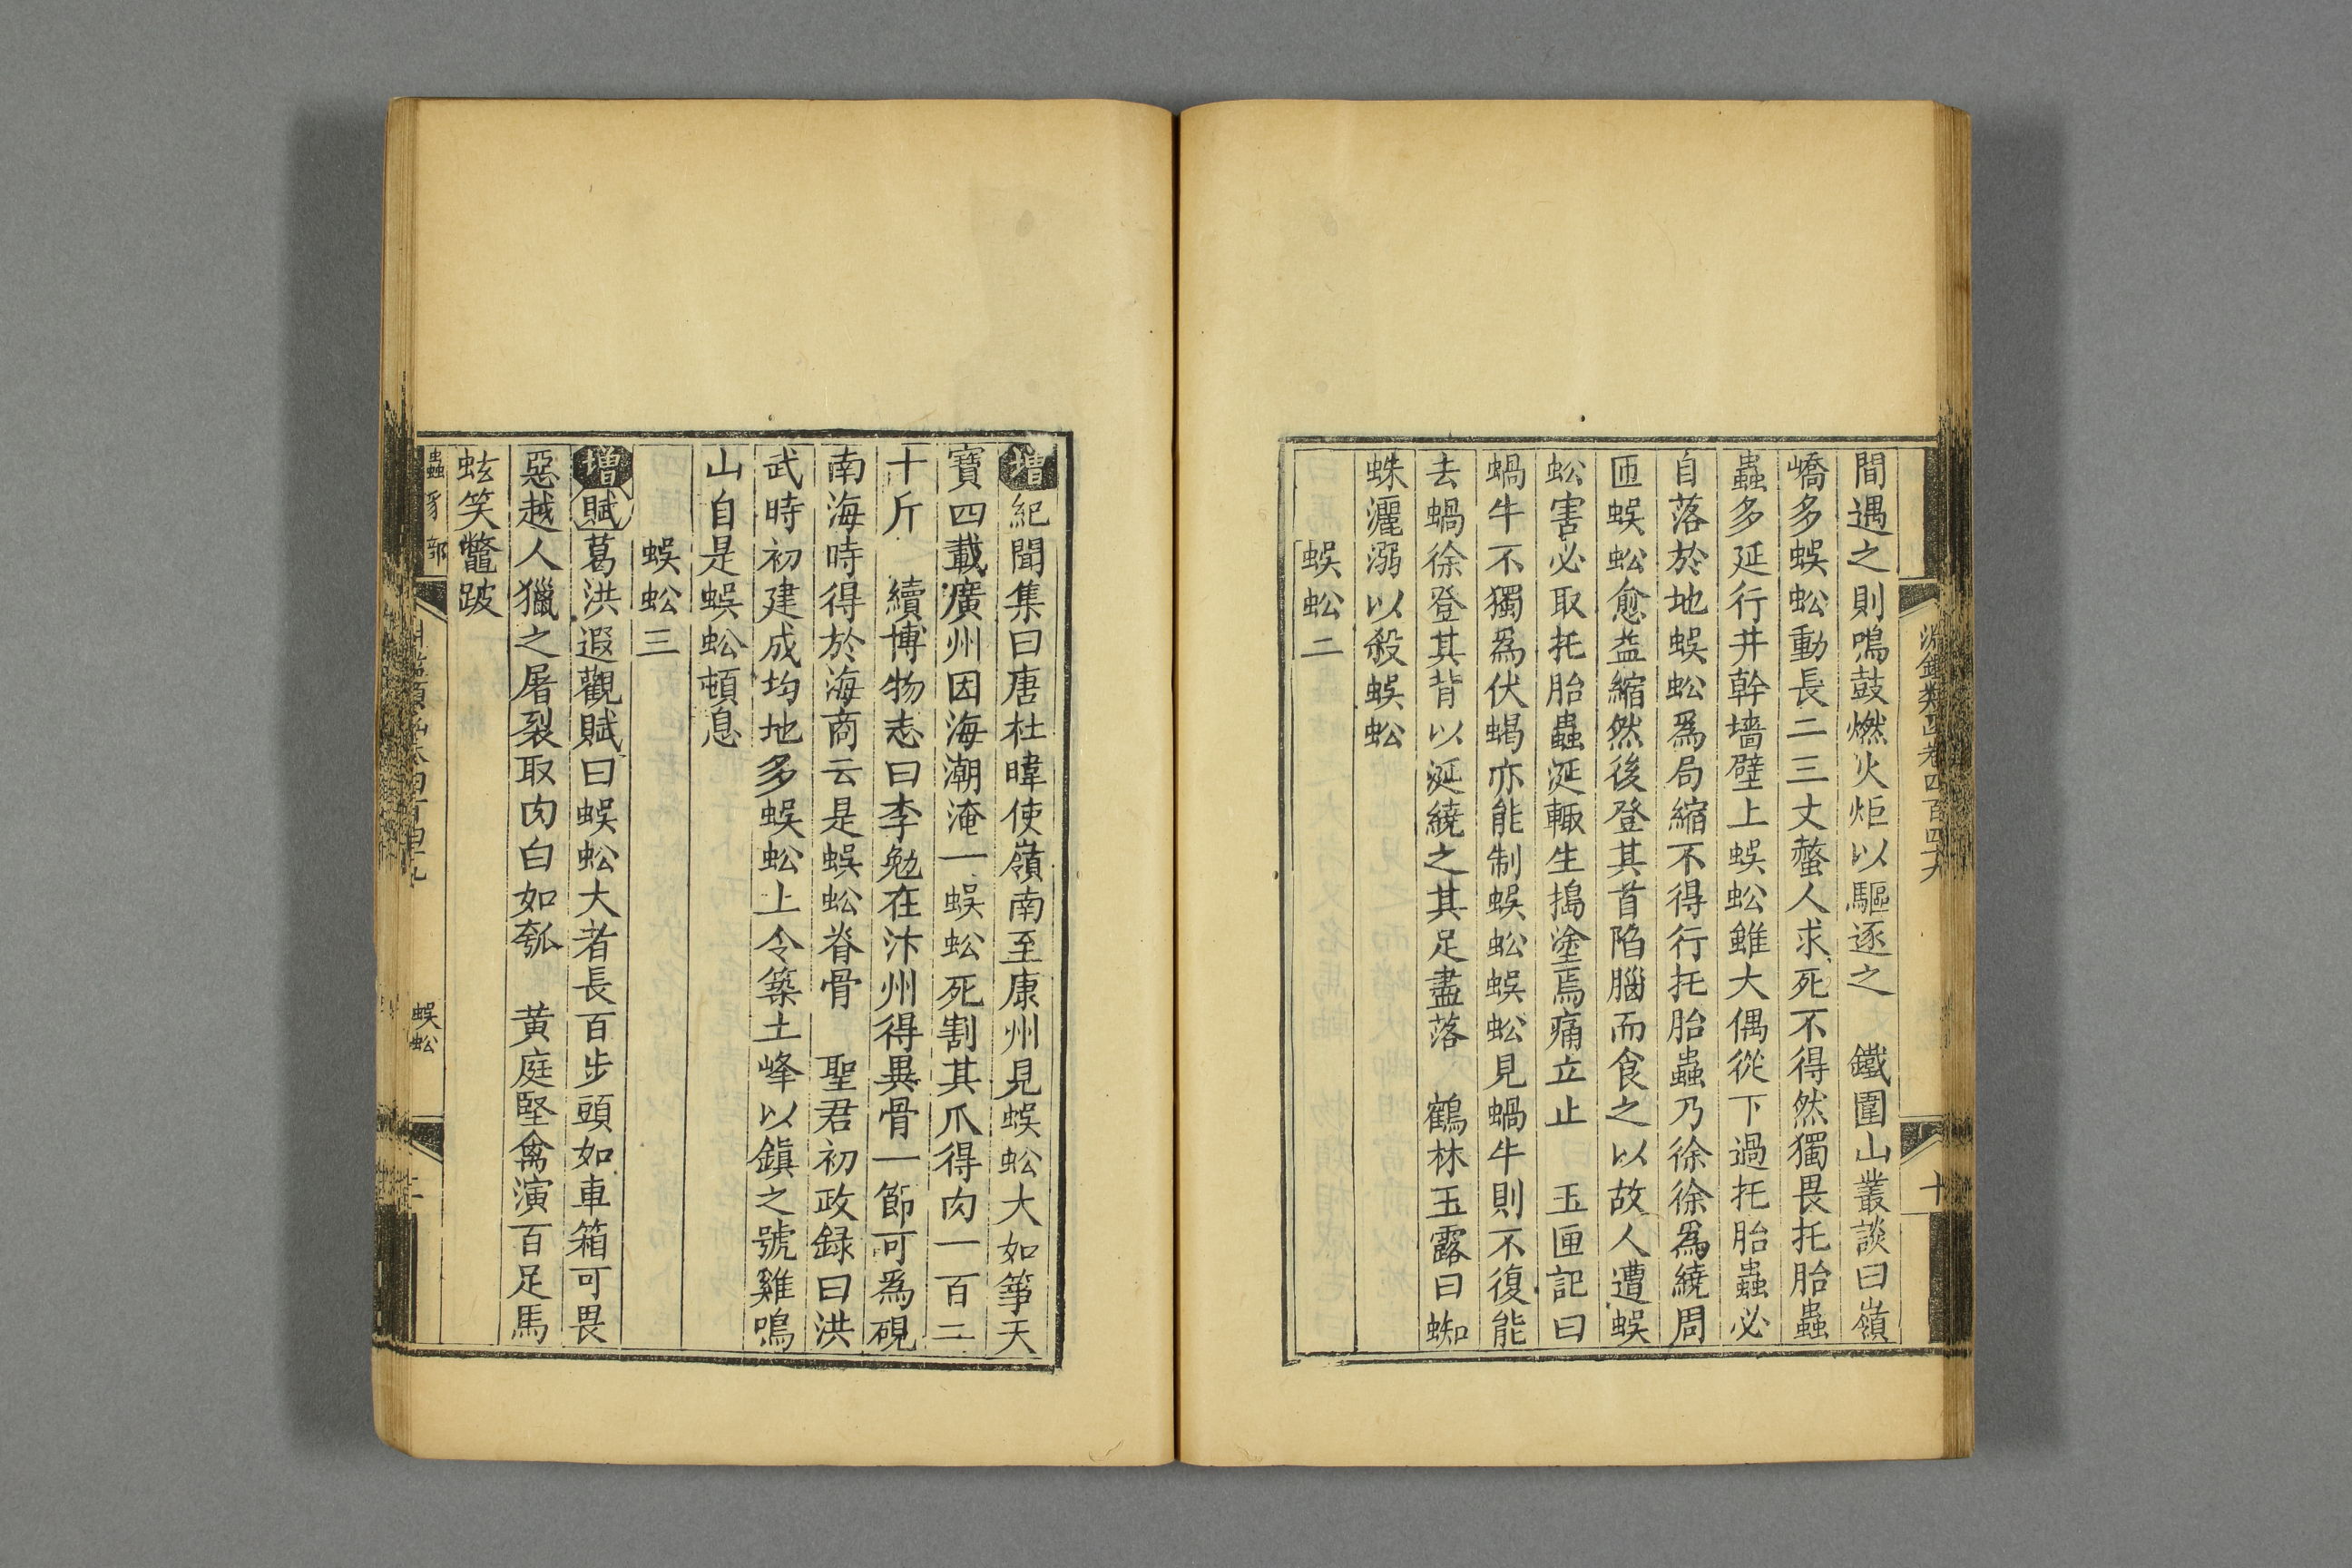 淵鑑類函卷四百四十九
十
間遇之則鳴鼓燃火炬以驅逐之　鐵圍山叢談曰嶺
嶠多蜈蚣動長二三丈螫人求死不得然獨畏托胎蟲
蟲多延行井幹墻壁上蜈蚣雖大偶從下過托胎蟲必
自落於地蜈蚣爲局縮不得行托胎蟲乃徐徐爲繞周
匝蜈蚣愈益縮然後登其首陷腦而食之以故人遭蜈
蚣害必取托胎蟲涎輙生搗塗焉痛立止　玉匣記曰
蝸牛不獨爲伏蝎亦能制蜈蚣蜈蚣見蝸牛則不復能
去蝸徐登其背以涎繞之其足盡落　鶴林玉露曰蜘
蛛灑溺以殺蜈蚣
蜈蚣二
增紀聞集曰唐杜暐使嶺南至康州見蜈蚣大如箏天
寶四載廣州因海潮淹一蜈蚣死割其爪得肉一百二
十斤　續博物志曰李勉在汴州得異骨一節可爲硯
南海時得於海商云是蜈蚣脊骨　聖君初政録曰洪
武時初建成均地多蜈蚣上令築土峰以鎮之號雞鳴
山自是蜈蚣頓息
蜈蚣三
增賦葛洪遐觀賦曰蜈蚣大者長百步頭如車箱可畏
惡越人獵之屠裂取肉白如瓠　黃庭堅禽演百足馬
蚿笑鼈跛
蟲豸部
蜈蚣